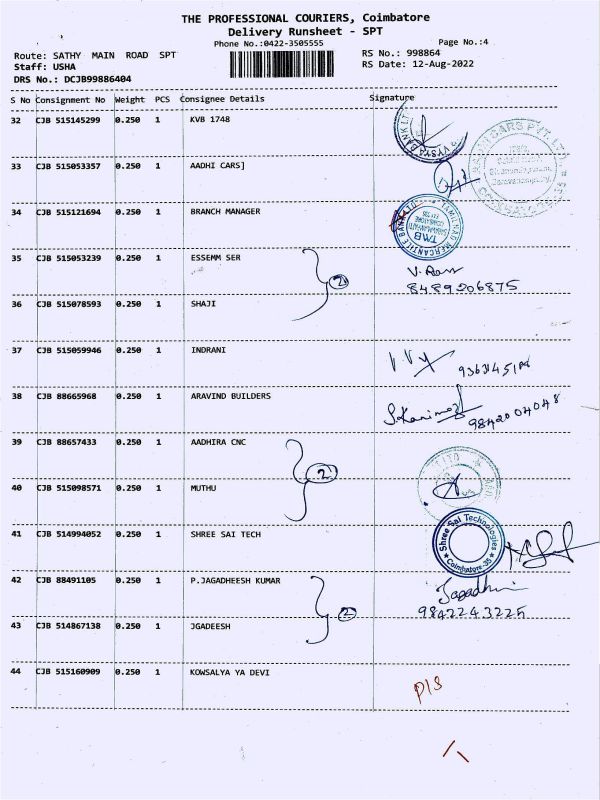 THE PROFESSIONAL COURIERS, Coimbatore
Delivery Runsheet - SPT
Phone No.:0422-3505555 Page No.:4
Route: SATHY MAIN ROAD SPT RS No.: 998864
Staff: USHA RS Date: 12-Aug-2022
DRS No.: DCJB99886404
S No Consignment No Weight PCS Consignee Details Signature
32 CJB 515145299 0.250 1 KVB 1748
33 CJB 515053357 0.250 1 AADHI CARS]
34 CJB 515121694 0.250 1 BRANCH MANAGER
TAMILNAD MERCANTILE BANK LTD
TMB
35 CJB 515053239 0.250 1 ESSEMM SER
2
V. Ram
8489206875
36 CJB 515078593 0.250 1 SHAJI
37 CJB 515059946 0.250 1 INDRANI
38 CJB 88665968 0.250 1 ARAVIND BUILDERS
9842004048
39 CJB 88657433 0.250 1 AADHIRA CNC
2
40 CJB 515098571 0.250 1 MUTHU
41 CJB 514994052 0.250 1 SHREE SAI TECH
Shree Sai Technologies
Coimbatore-35
42 CJB 88491105 0.250 1 P.JAGADHEESH KUMAR
2
9842243225
43 CJB 514867138 0.250 1 JGADEESH
44 CJB 515160909 0.250 1 KOWSALYA YA DEVI
P1S